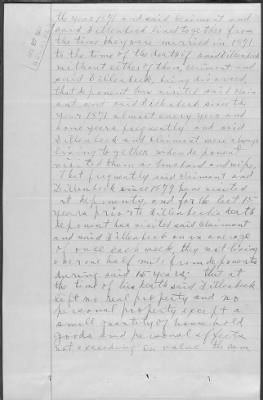 the year 1871 and said claimant and
said Dillenbeck lived together from
the time they were married in 1871
to the time of the death of said Dillenbeck
without either of them, claimant and
said Dillenbeck, being divorced,
that deponent has visited said claim-
ant and said Dillenbeck since the
year 1871 almost every year and
some years frequently and said
Dillenbeck and claimant were always
living together when deponent
visited them as husband and wife,
That frequently said claimant and
Dillenbeck since 1879 have visited
at deponents, and for the last 15
years prior to Dillenbeck's death
deponent has visited said claimant
and said Dillenbeck on an average
of once each week, they not living
over one half mile from deponents
during said 15 years. That at
the time of his death said Dillenbeck
left no real property and no
personal property except a
small quantity of household
goods and personal effects
not exceeding in value the sum